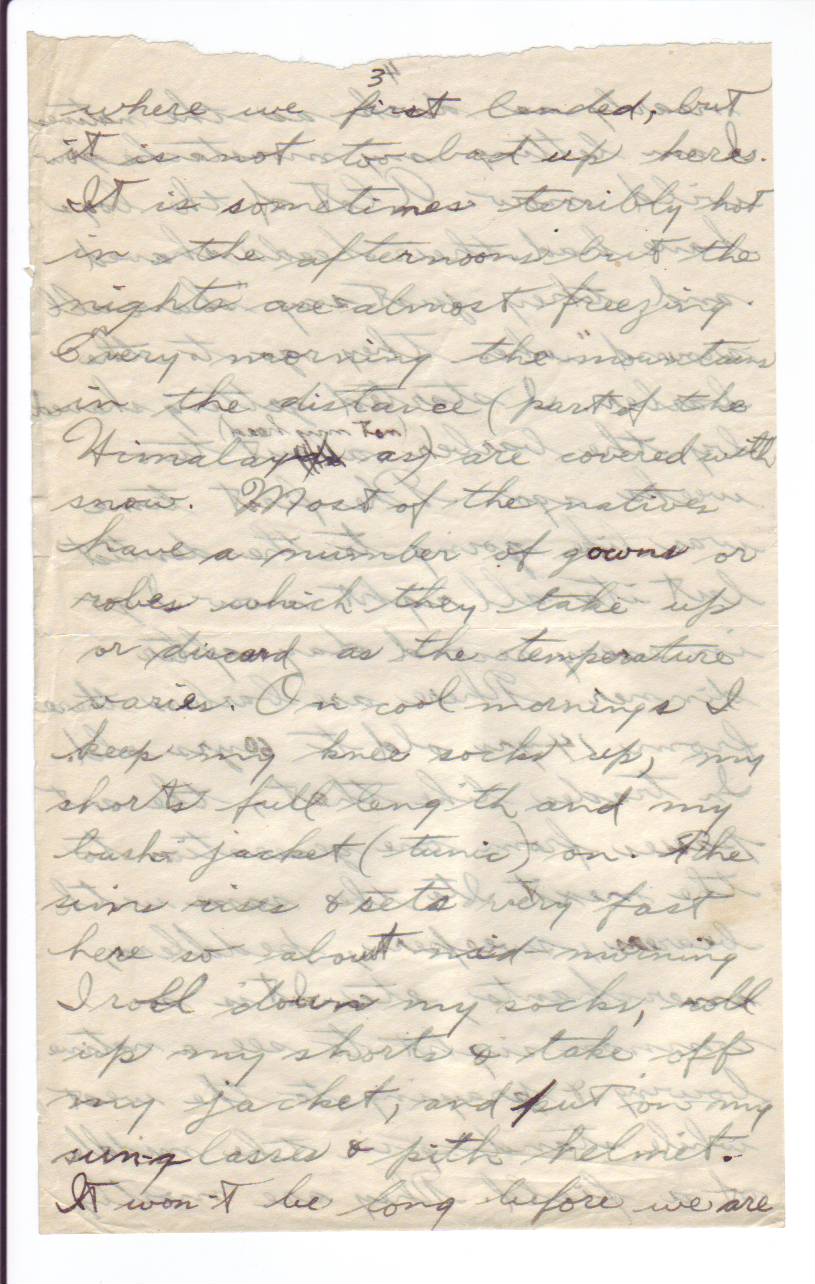 3
where we first landed, but
it is not too bad up here.
It is sometimes terribly hot
in the afternoons but the
nights are almost freezing.
Every morning the mountains
in the distance (part of the
(not my head)
Himalayas) are covered with
snow. Most of the natives
have a number of gowns or
robes which they take up
or discard as the temperature
varies. On cool mornings I
keep my knee socks up, my
shorts full length and my
bush jacket (tunic) on. The
sun rises & sets very fast
here so about mid-morning
I roll down my socks, roll
up my shorts & take off
my jacket, and put on my
sun-glasses & pith helmet.
It won't be long before we are